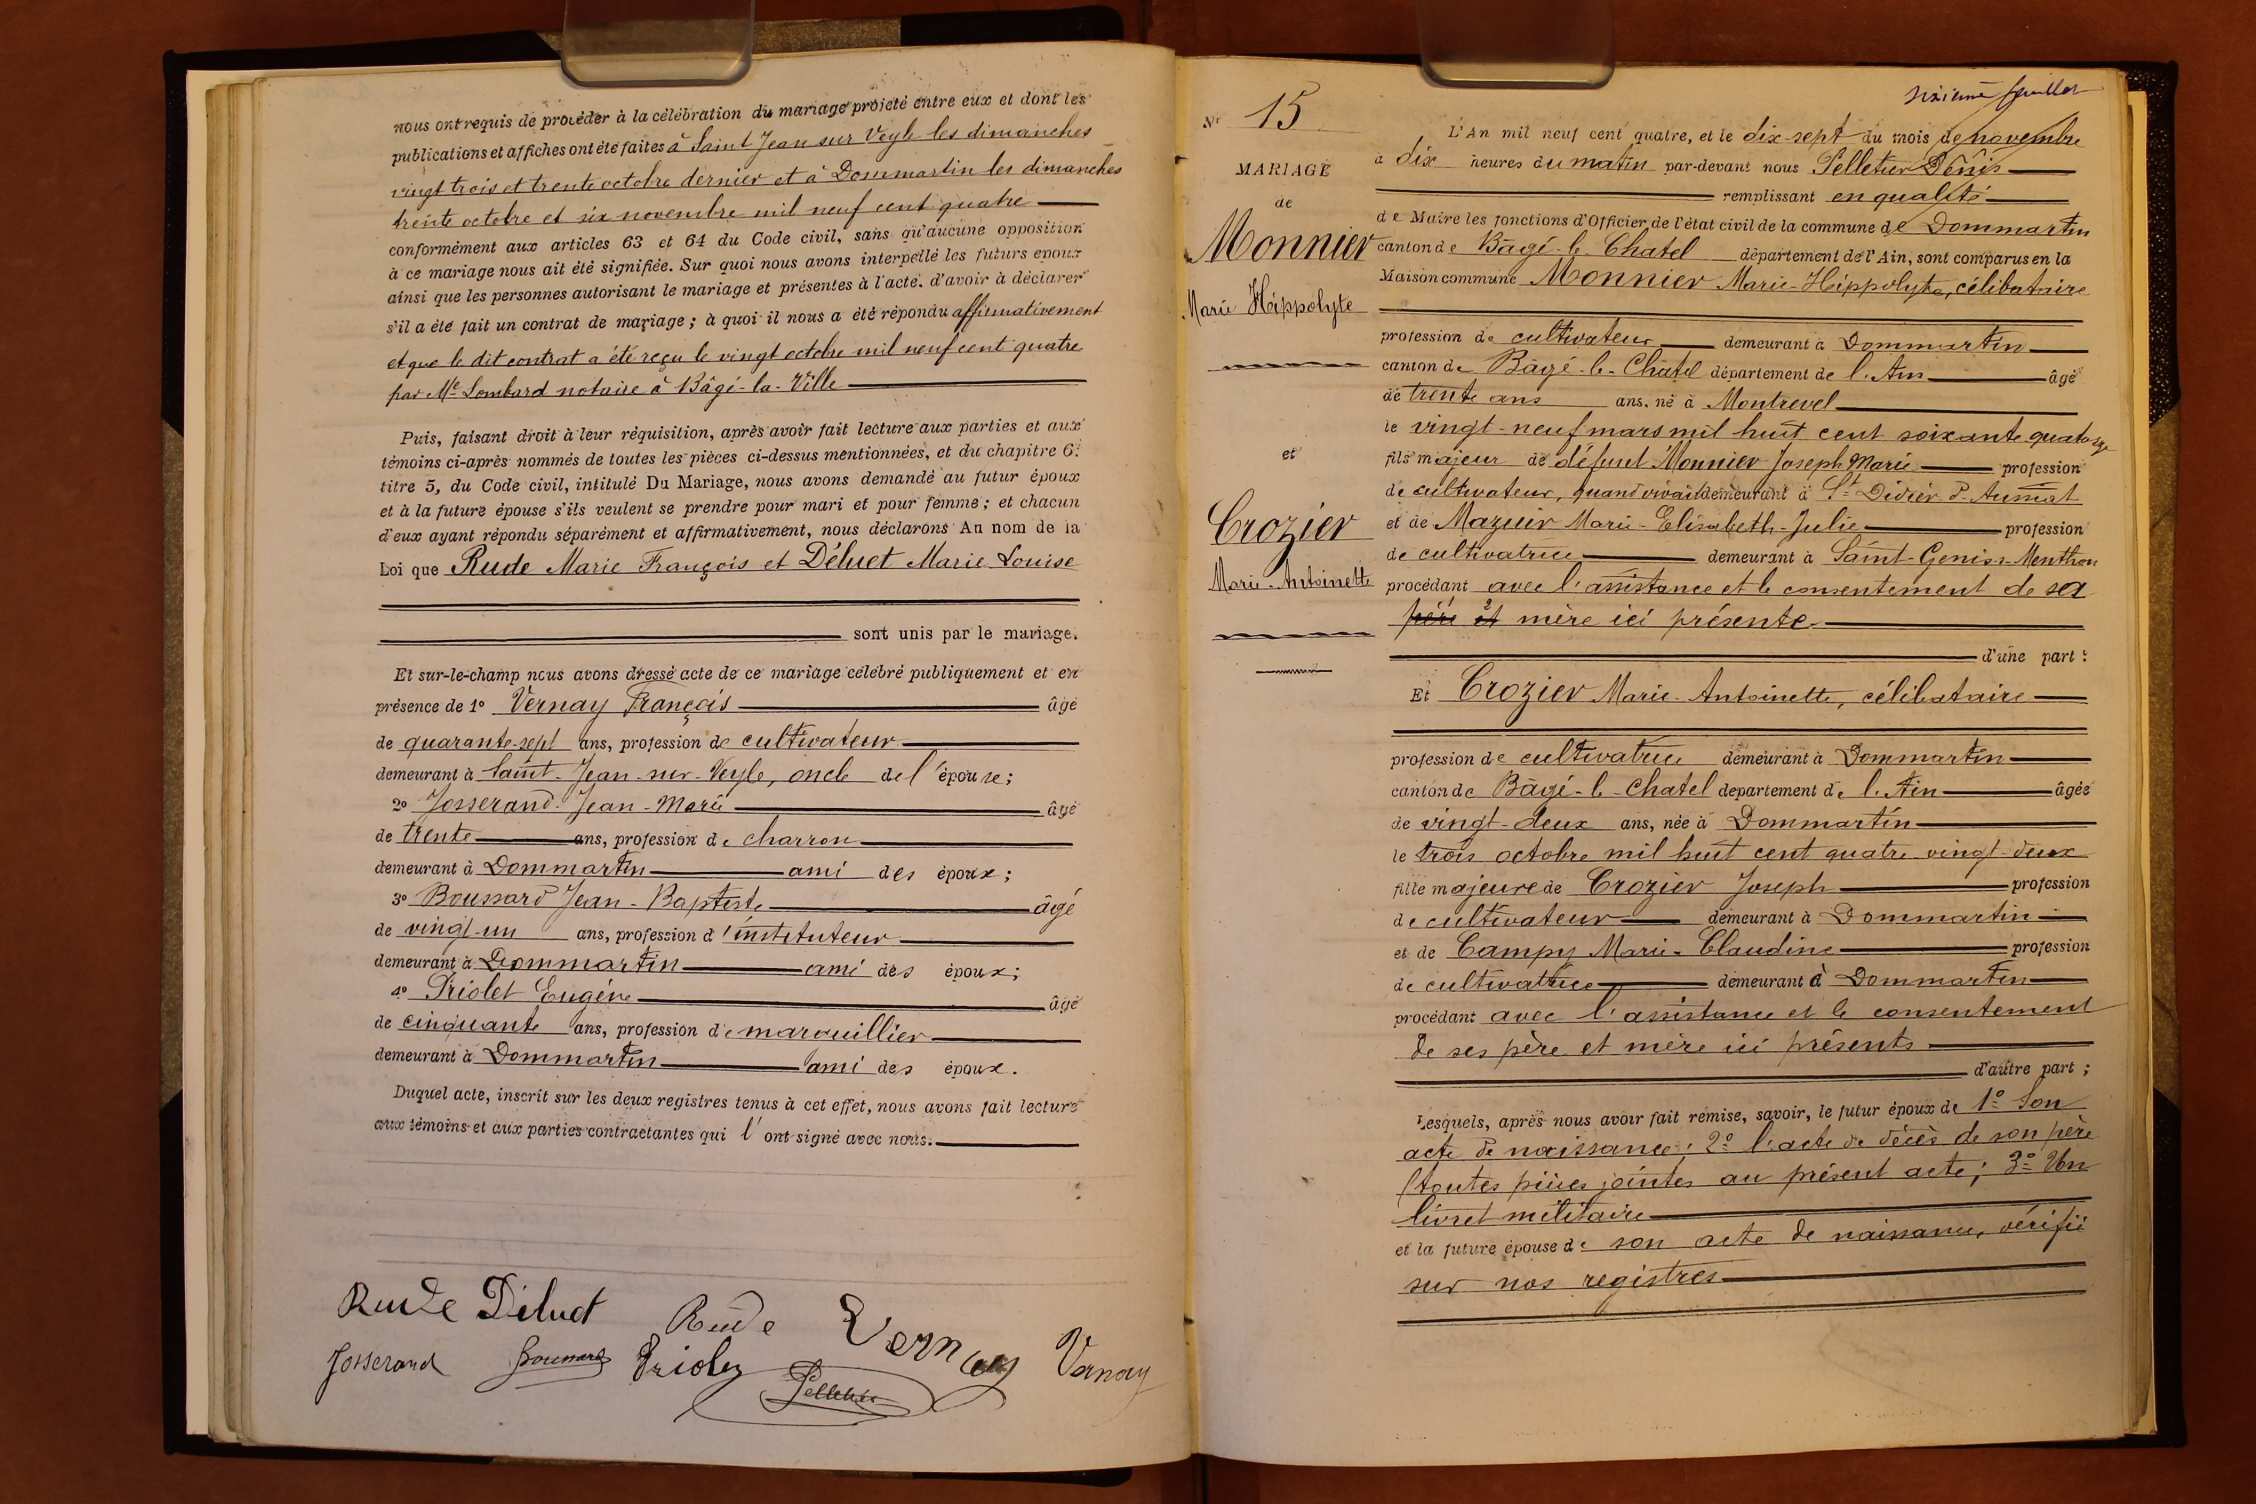 nous ont requis de procéder à la célébration du mariage projeté entre eux et dont les
publications et affiches ont été faites à Saint Jean sur Veyle les dimanches
vingt trois et trente octobre dernier et à Dommartin les dimanches
trente octobre et six novembre mil neuf cent quatre
conformément aux articles 63 et 64 du Code civil, sans qu'aucune opposition
à ce mariage nous ait été signifiée. Sur quoi nous avons interpellé les futurs époux
ainsi que les personnes autorisant le mariage et présentes à l'acte, d'avoir à déclarer
s'il a été fait un contrat de mariage; à quoi il nous a été répondu affirmativement
et que le dit contrat a été reçu le vingt octobre mil neuf cent quatre
par Me Lombard notaire à Bâgé-la-Ville
Puis, faisant droit à leur réquisition, après avoir fait lecture aux parties et aux
témoins ci-après nommés de toutes les pièces ci-dessus mentionnées, et du chapitre 6.
titre 5, du Code civil, intitulé Du Mariage, nous avons demandé au futur époux
et à la future épouse s'ils veulent se prendre pour mari et pour femme; et chacun
d'eux ayant répondu séparément et affirmativement, nous déclarons Au nom de la
Loi que Rude Marie François et Déluet Marie Louise
sont unis par le mariage.
Et sur-le-champ nous avons dressé acte de ce mariage célébré publiquement et en
présence de 1° Vernay François âgé
de quarante-sept ans, profession de cultivateur
demeurant à Saint-Jean-sur-Veyle, oncle de l'épouse;
2° Josserand Jean-Marie âgé
de trente ans, profession de charron
demeurant à Dommartin ami des époux;
3° Boussard Jean-Baptiste âgé
de vingt-un ans, profession d'instituteur
demeurant à Dommartin ami des époux;
4° Priolet Eugène âgé
de cinquante ans, profession de marouillier
demeurant à Dommartin ami des époux.
Duquel acte, inscrit sur les deux registres tenus à cet effet, nous avons fait lecture
aux témoins et aux parties contractantes qui l'ont signé avec nous.
Rude Déluet Rude Vernay Vernay
Josserand Boussard Priolet
Pelletier
sixième feuillet
No 15
MARIAGE
de
Monnier
Marie Hippolyte
et
Crozier
Marie-Antoinette
L'An mil neuf cent quatre, et le dix-sept du mois de novembre
à dix heures du matin par-devant nous Pelletier Denis
remplissant en qualité
de Maire les fonctions d'Officier de l'état civil de la commune de Dommartin
canton de Bâgé-le-Chatel département de l'Ain, sont comparus en la
Maison commune Monnier Marie-Hippolyte, célibataire
profession de cultivateur demeurant à Dommartin
canton de Bâgé-le-Châtel département de l'Ain âgé
de trente ans ans, né à Montrevel
le vingt-neuf mars mil huit cent soixante quatorze
fils majeur de défunt Monnier Joseph Marie profession
de cultivateur, quand vivait demeurant à St Didier d'Aussiat
et de Mazuir Marie-Elisabeth-Julie profession
de cultivatrice demeurant à Saint-Genis-s-Menthon
procédant avec l'assistance et le consentement de sa
père et mère ici présente
d'une part:
Et Crozier Marie-Antoinette, célibataire
profession de cultivatrice demeurant à Dommartin
canton de Bâgé-le-Chatel département de l'Ain âgée
de vingt-deux ans, née à Dommartin
le trois octobre mil huit cent quatre-vingt-deux
fille majeure de Crozier Joseph profession
de cultivateur demeurant à Dommartin
et de Campy Marie-Claudine profession
de cultivatrice demeurant à Dommartin
procédant avec l'assistance et le consentement
de ses père et mère ici présents
d'autre part;
Lesquels, après nous avoir fait remise, savoir, le futur époux de 1° Son
acte de naissance; 2° l'acte de décès de son père
(toutes pièces jointes au présent acte; 3° Un
livret militaire
et la future épouse de son acte de naissance, vérifié
sur nos registres